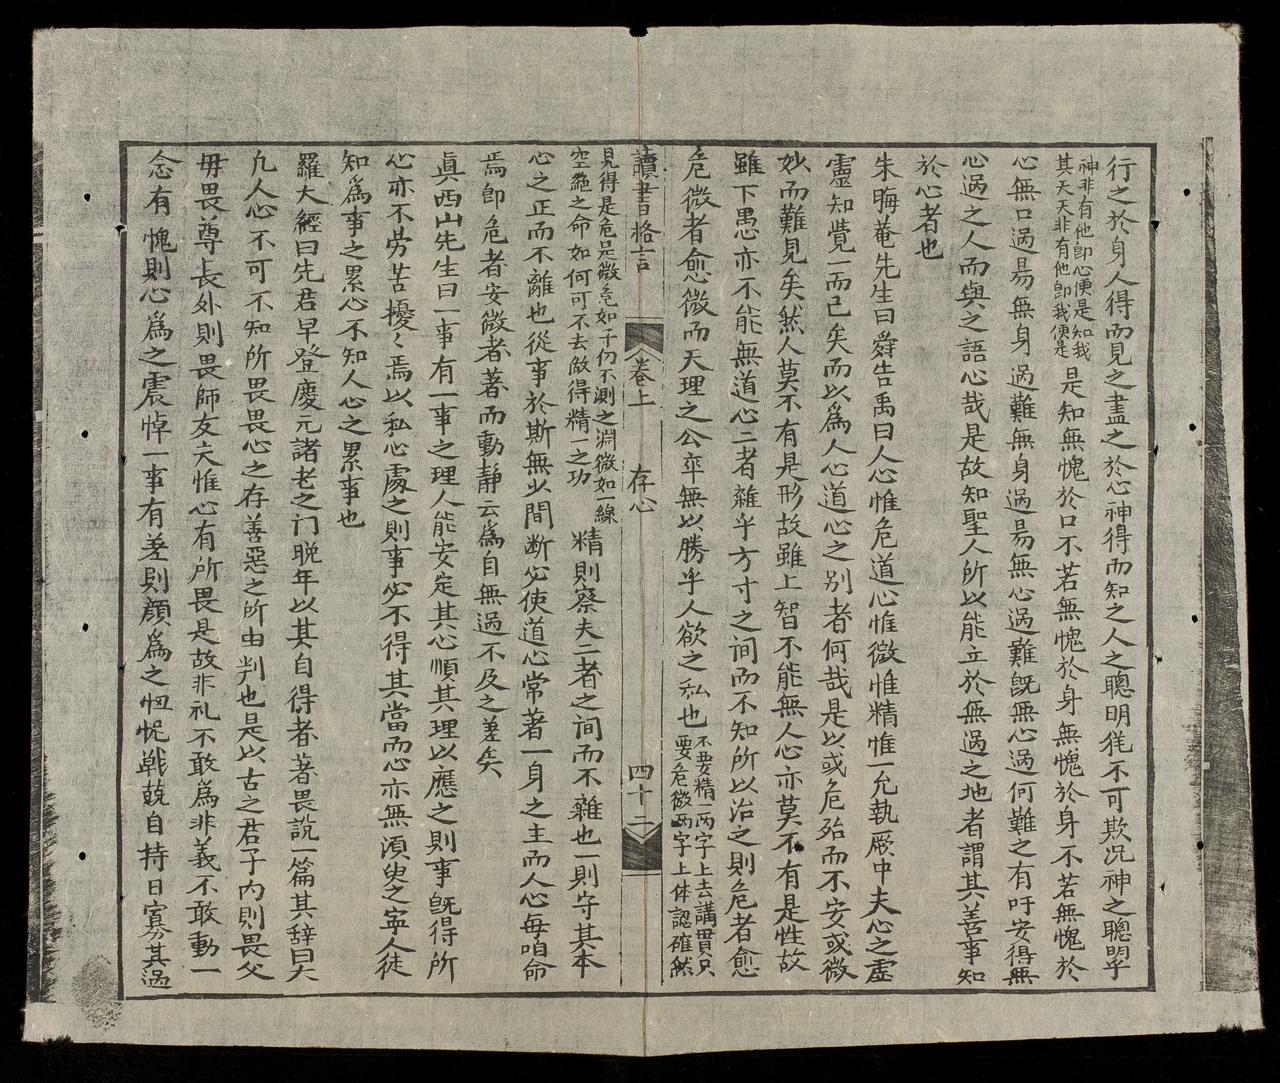 行之於身人得而見之盡之於心神得而知之人之聰明猶不可欺况神之聰明乎
神非有他卽心便是知我
其天天非有他卽我便是
是知無愧於口不若無愧於身無愧於身不若無愧於
心無口過易無身過難無身過易無心過難旣無心過何難之有吁安得無
心過之人而與之語心哉是故知聖人所以能立於無過之地者謂其善事知
於心者也
朱晦菴先生曰舜告禹曰人心惟危道心惟微惟精惟一允執厥中夫心之虛
靈知覺一而已矣而以爲人心道心之别者何哉是以或危殆而不安或微
妙而難見矣然人莫不有是形故雖上智不能無人心亦莫不有是性故
雖下愚亦不能無道心二者雜乎方寸之间而不知所以治之則危者愈
危微者愈微而天理之公卒無以勝乎人欲之私也
不要精一两字上去講貫只
要危微两字上体認確然
讀書格言 卷上 存心 四十二
見得是危是微危如千仞不測之淵微如一線
空懸之命如何可不去做得精一之功
精則察夫二者之间而不雜也一則守其本
心之正而不離也從事於斯無少間断必使道心常著一身之主而人心每咱命
焉卽危者安微者著而動靜云爲自無過不及之差矣
眞西山先生曰一事有一事之理人能安定其心順其理以應之則事旣得所
心亦不劳苦擾々焉以私心處之則事必不得其當而心亦無湏臾之寧人徒
知爲事之累心不知人心之累事也
羅大經曰先君早登慶元諸老之门晚年以其自得者著畏説一篇其辞曰大
凡人心不可不知所畏畏心之存善惡之所由判也是以古之君子内則畏父
毋畏尊長外則畏師友夫惟心有所畏是故非礼不敢爲非義不敢動一
念有愧則心爲之震悼一事有差則顔爲之忸怩戰兢自持日寡其過